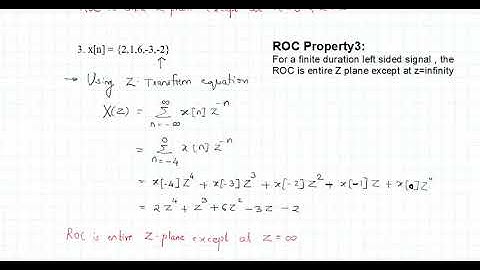 3. x[n] = {2,1,6,-3,-2}
↑
ROC Property3:
For a finite duration left sided signal , the
ROC is entire Z plane except at z=infinity
→ Using Z-Transform equation
X(Z) = ∞ Σ n=-∞ x[n] z^-n
= 0 Σ n=-4 x[n] z^-n
= x[-4]Z^4 + x[-3]Z^3 + x[-2]Z^2 + x[-1]Z + x[0]Z^0
= 2Z^4 + Z^3 + 6Z^2 - 3Z - 2
ROC is entire Z-plane except at Z = ∞